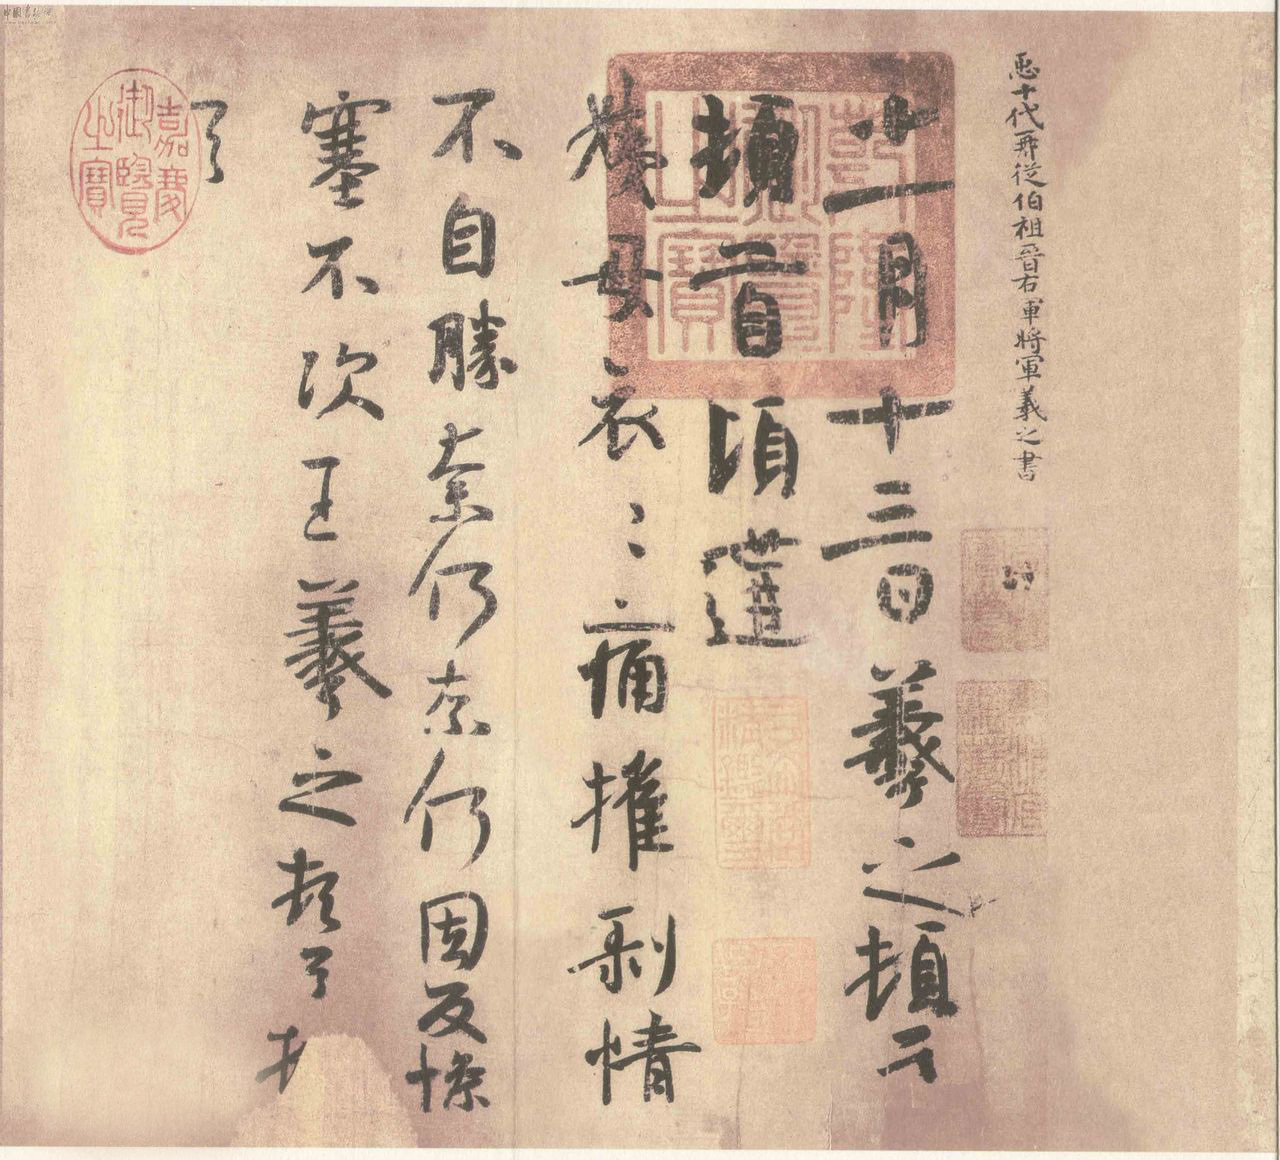 𢘑十代再從伯祖晉右軍將軍羲之書
十一月十三日羲之頓首
頓首頃遘
姨母哀〻痛摧剥情
不自勝奈何奈何因反慘
塞不次王羲之頓首頓
首
乾隆御覽之寶
三希堂精鑑璽
宜子孫
嘉慶御覽之寶